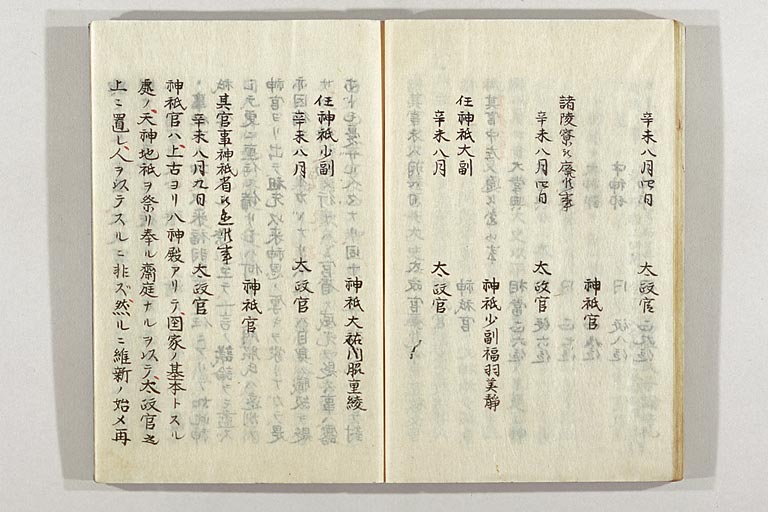 辛未八月四日　太政官
神祇官
諸陵寮被廃候事
辛未八月四日　太政官
神祇少副福羽美静
任神祇大副
辛未八月　太政官
神祇大祐門脇重綾
任神祇少副
辛未八月　太政官
神祇官
其官事神祇省被改候事
辛未八月九日　太政官
神祇官ハ上古ヨリ八神殿アリテ国家ノ基本トスル
処ノ天神地祇ヲ祭リ奉ル斎庭ナルヲ以テ太政官之
上ニ置レ人ヲ以テスルニ非ズ然ルニ維新ノ始メ再